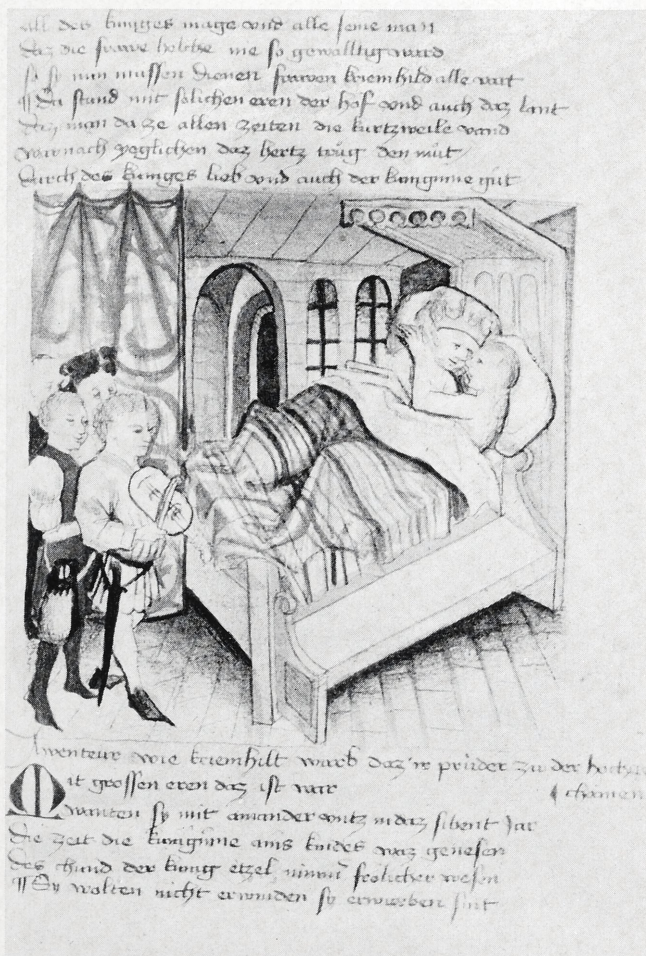 all des kuniges mage vnd alle seine man
daz die frawe helche nie so gewalltig ward
so sy nun mussen dienen frawen kriemhild alle vart
¶ Da stund mit solichen eren der hof vnd auch daz lant
daz man da ze allen zeiten die kurtzweile vand
warnach yeglichen daz hertz trug den mut
durch des kuniges lieb vnd auch der kunginne gut
Awenteur wie kriemhilt warb daz ir pruder zu der
Mit grossen eren daz ist war ¶ chomen
wanten sy mit ainander vntz in daz sibent Jar
die zeit die kuniginne ains kindes waz genesen
des chund der kunig etzel nimmer frolicher wesen
¶ Sy wolten nicht erwinden sy erwurben sint